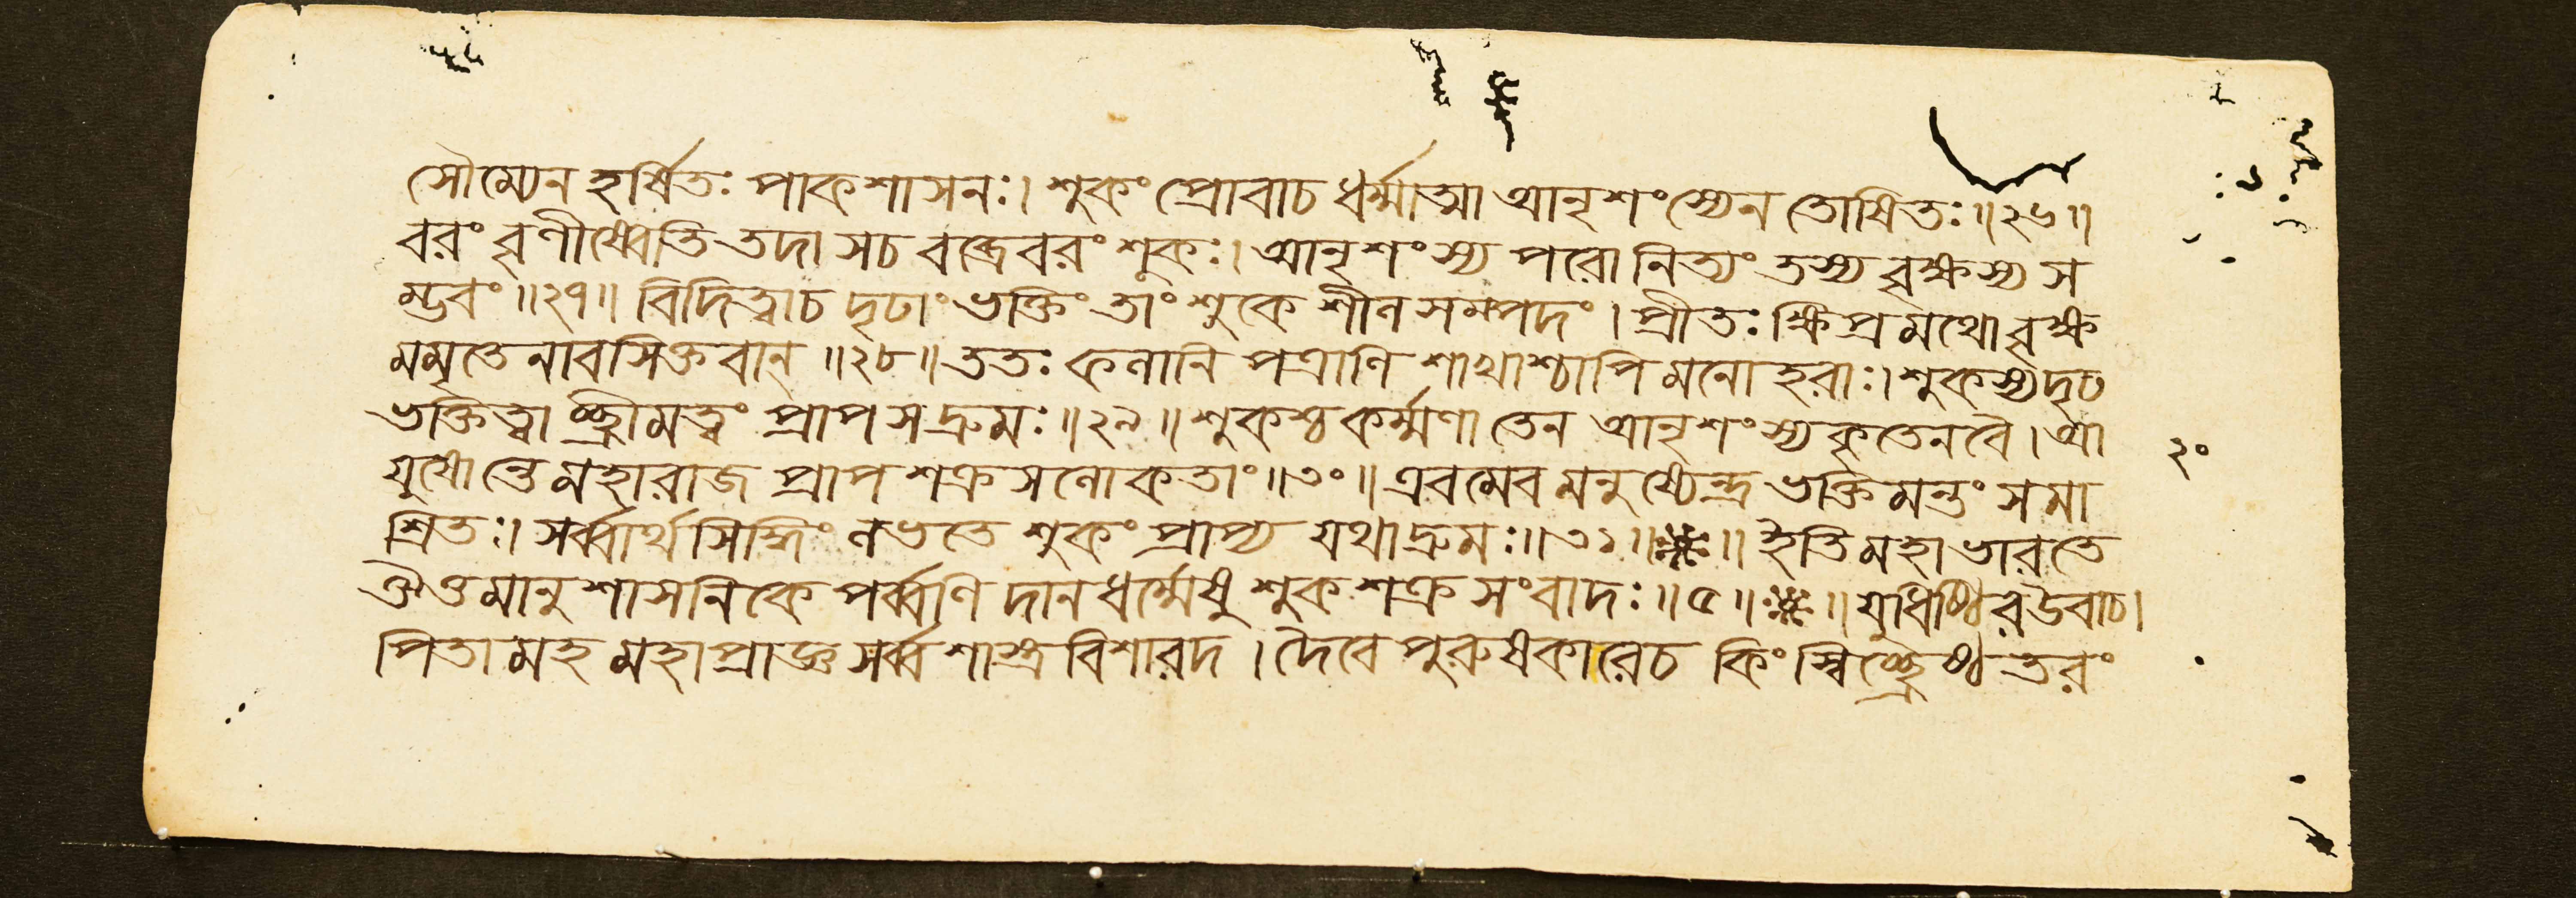 সৌম্যেন হর্ষিতঃ পাকশাসনঃ। শুকং প্রোবাচ ধর্ম্মাত্মা আনৃশংস্যেন তোষিতঃ॥২৬॥
বরং বৃণীষ্বেতি তদা সচ বব্রেবরং শুকঃ। আনৃশংস্য পরো নিত্যং তস্য বৃক্ষস্য স
ম্ভবং॥২৭॥ বিদিত্বাচ দৃঢাং ভক্তিং তাং শুকে শীলসম্পদং। প্রীতঃ ক্ষিপ্রমথো বৃক্ষ
মমৃতেনাবসিক্তবান্॥২৮॥ ততঃ ফলানি পত্রাণি শাখাশ্চাপি মনোহরাঃ। শুকস্যদৃঢ
ভক্তিত্বাচ্ছ্রীমত্বং প্রাপ সদ্রুমঃ॥২৯॥ শুকশ্চ কর্ম্মণা তেন আনৃশংস্যকৃতেনবৈ। আ
যুষোন্তে মহারাজ প্রাপ শক্রসলোকতাং॥৩০॥ এবমেব মনুষ্যেন্দ্র ভক্তিমন্তং সমা
শ্রিতঃ। সর্ব্বার্থসিদ্ধিং লভতে শুকং প্রাপ্য যথাদ্রুমঃ॥৩১॥ ॥ ইতি মহাভারতে
ঐওমানুশাসনিকে পর্ব্বণি দানধর্ম্মেষু শুকশক্রসংবাদঃ॥৫॥ ॥ যুধিষ্ঠিরউবাচ।
পিতামহ মহাপ্রাজ্ঞ সর্ব্বশাস্ত্রবিশারদ। দৈবে পুরুষকারেচ কিংস্বিচ্ছ্রেষ্ঠতরং
২০